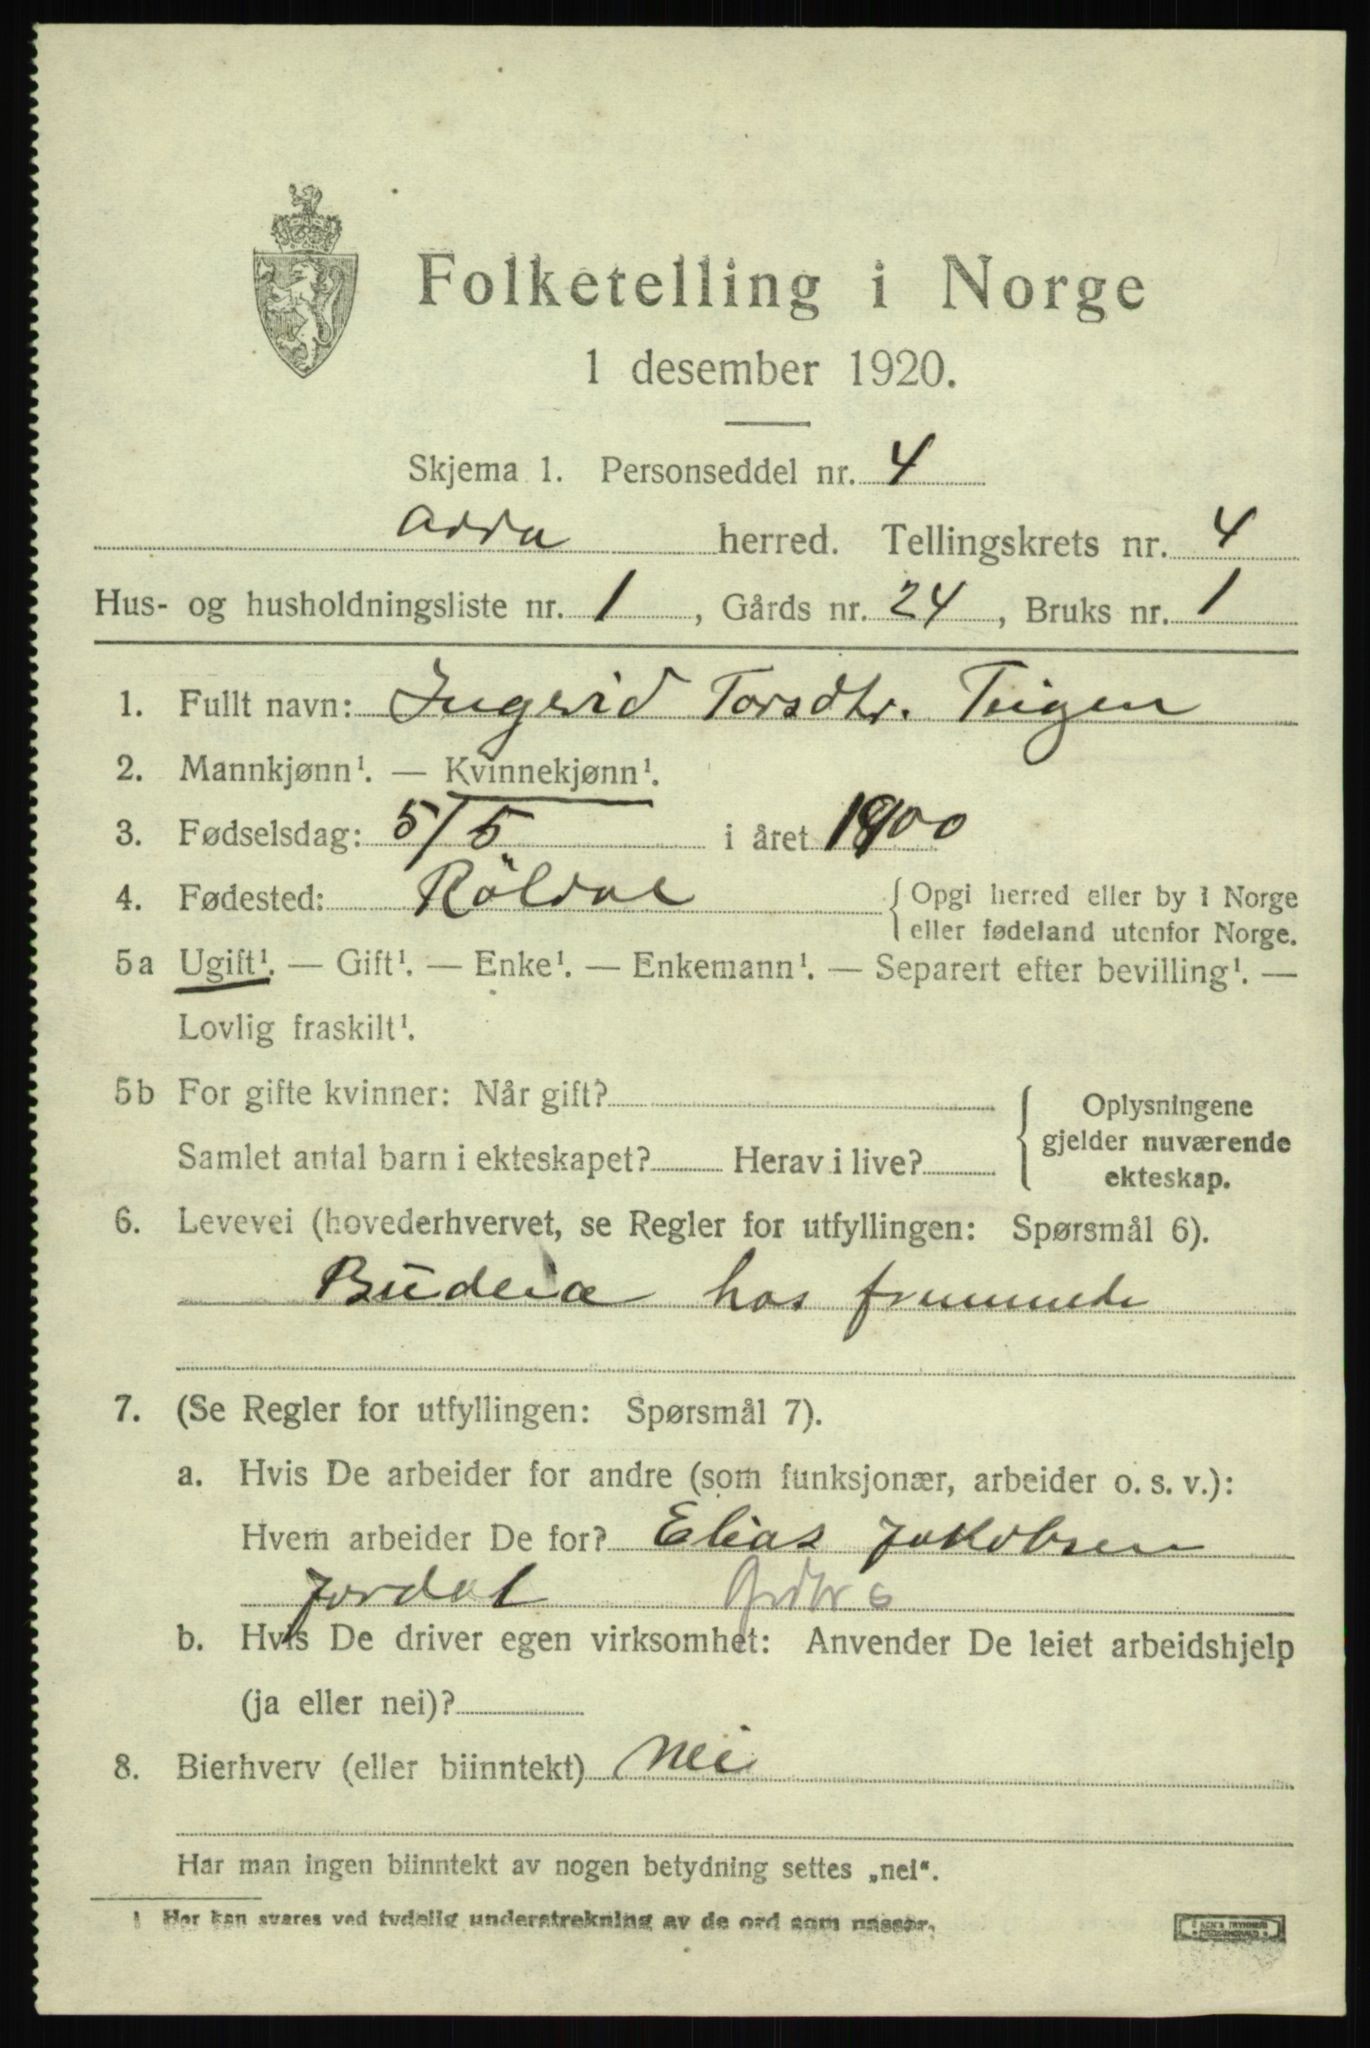 Folketelling i Norge
1 desember 1920.
Skjema 1. Personseddel nr. 4
Odda herred. Tellingskrets nr. 4
Hus- og husholdningsliste nr. 1, Gårds nr. 24, Bruks nr. 1
1. Fullt navn: Ingvid Torsdtr. Teigen
2. Mannkjønn¹. — Kvinnekjønn¹.
3. Fødselsdag: 5/5 i året 1900
4. Fødested: Röldal { Opgi herred eller by i Norge
eller fødeland utenfor Norge.
5a Ugift¹. — Gift¹. — Enke¹. — Enkemann¹. — Separert efter bevilling¹. —
Lovlig fraskilt¹.
5b For gifte kvinner: Når gift?
Samlet antal barn i ekteskapet? Herav i live?
{ Oplysningene
gjelder nuværende
ekteskap.
6. Levevei (hovederhvervet, se Regler for utfyllingen: Spørsmål 6).
Budeia hos fremmede
7. (Se Regler for utfyllingen: Spørsmål 7).
a. Hvis De arbeider for andre (som funksjonær, arbeider o. s. v.):
Hvem arbeider De for? Elias Jakobsen
Jordal
b. Hvis De driver egen virksomhet: Anvender De leiet arbeidshjelp
(ja eller nei)?
8. Bierhverv (eller biinntekt) Nei
Har man ingen biinntekt av nogen betydning settes „nei“.
1 Her kan svares ved tydelig understrekning av de ord som passer.